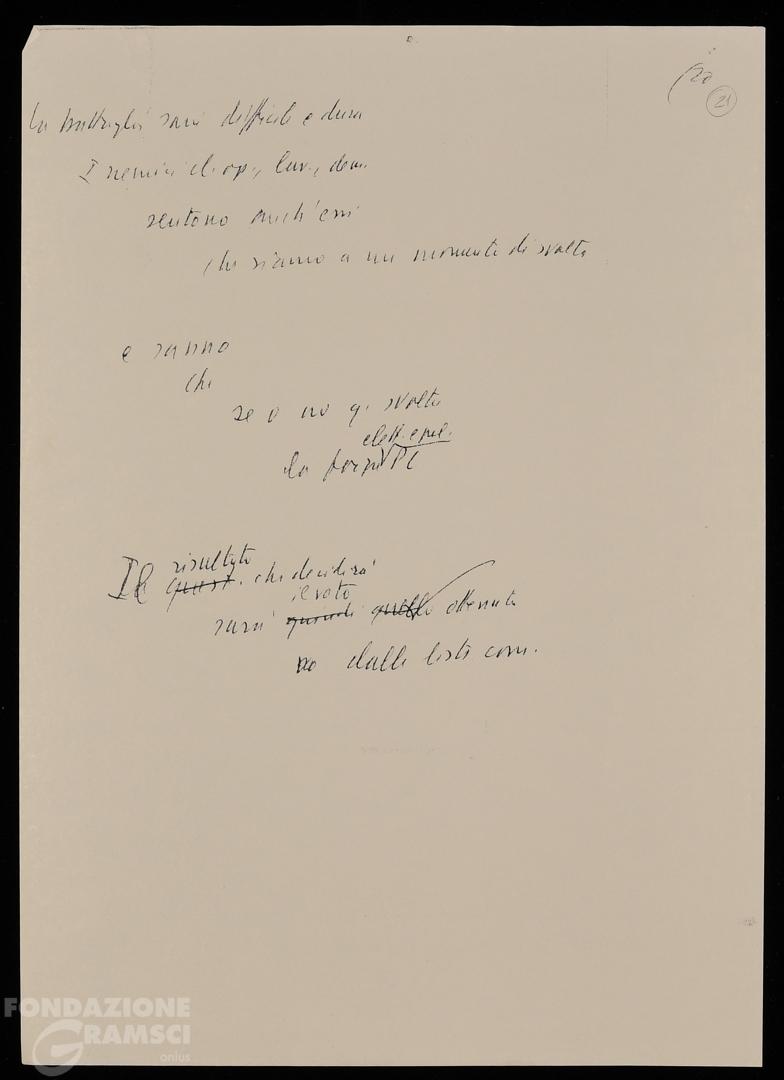 20
21
La battaglia sarà difficile e dura
I nemici cl. op., lav., dem.
sentono anch'essi
che siamo a un momento di svolta
e sanno
che
se o no q. svolta
elett. e pol.
la forza PC
risultato
Il quest. che deciderà
il voto
sarà quindi quello ottenuto
no dalle liste com.
FONDAZIONE
GRAMSCI
onlus